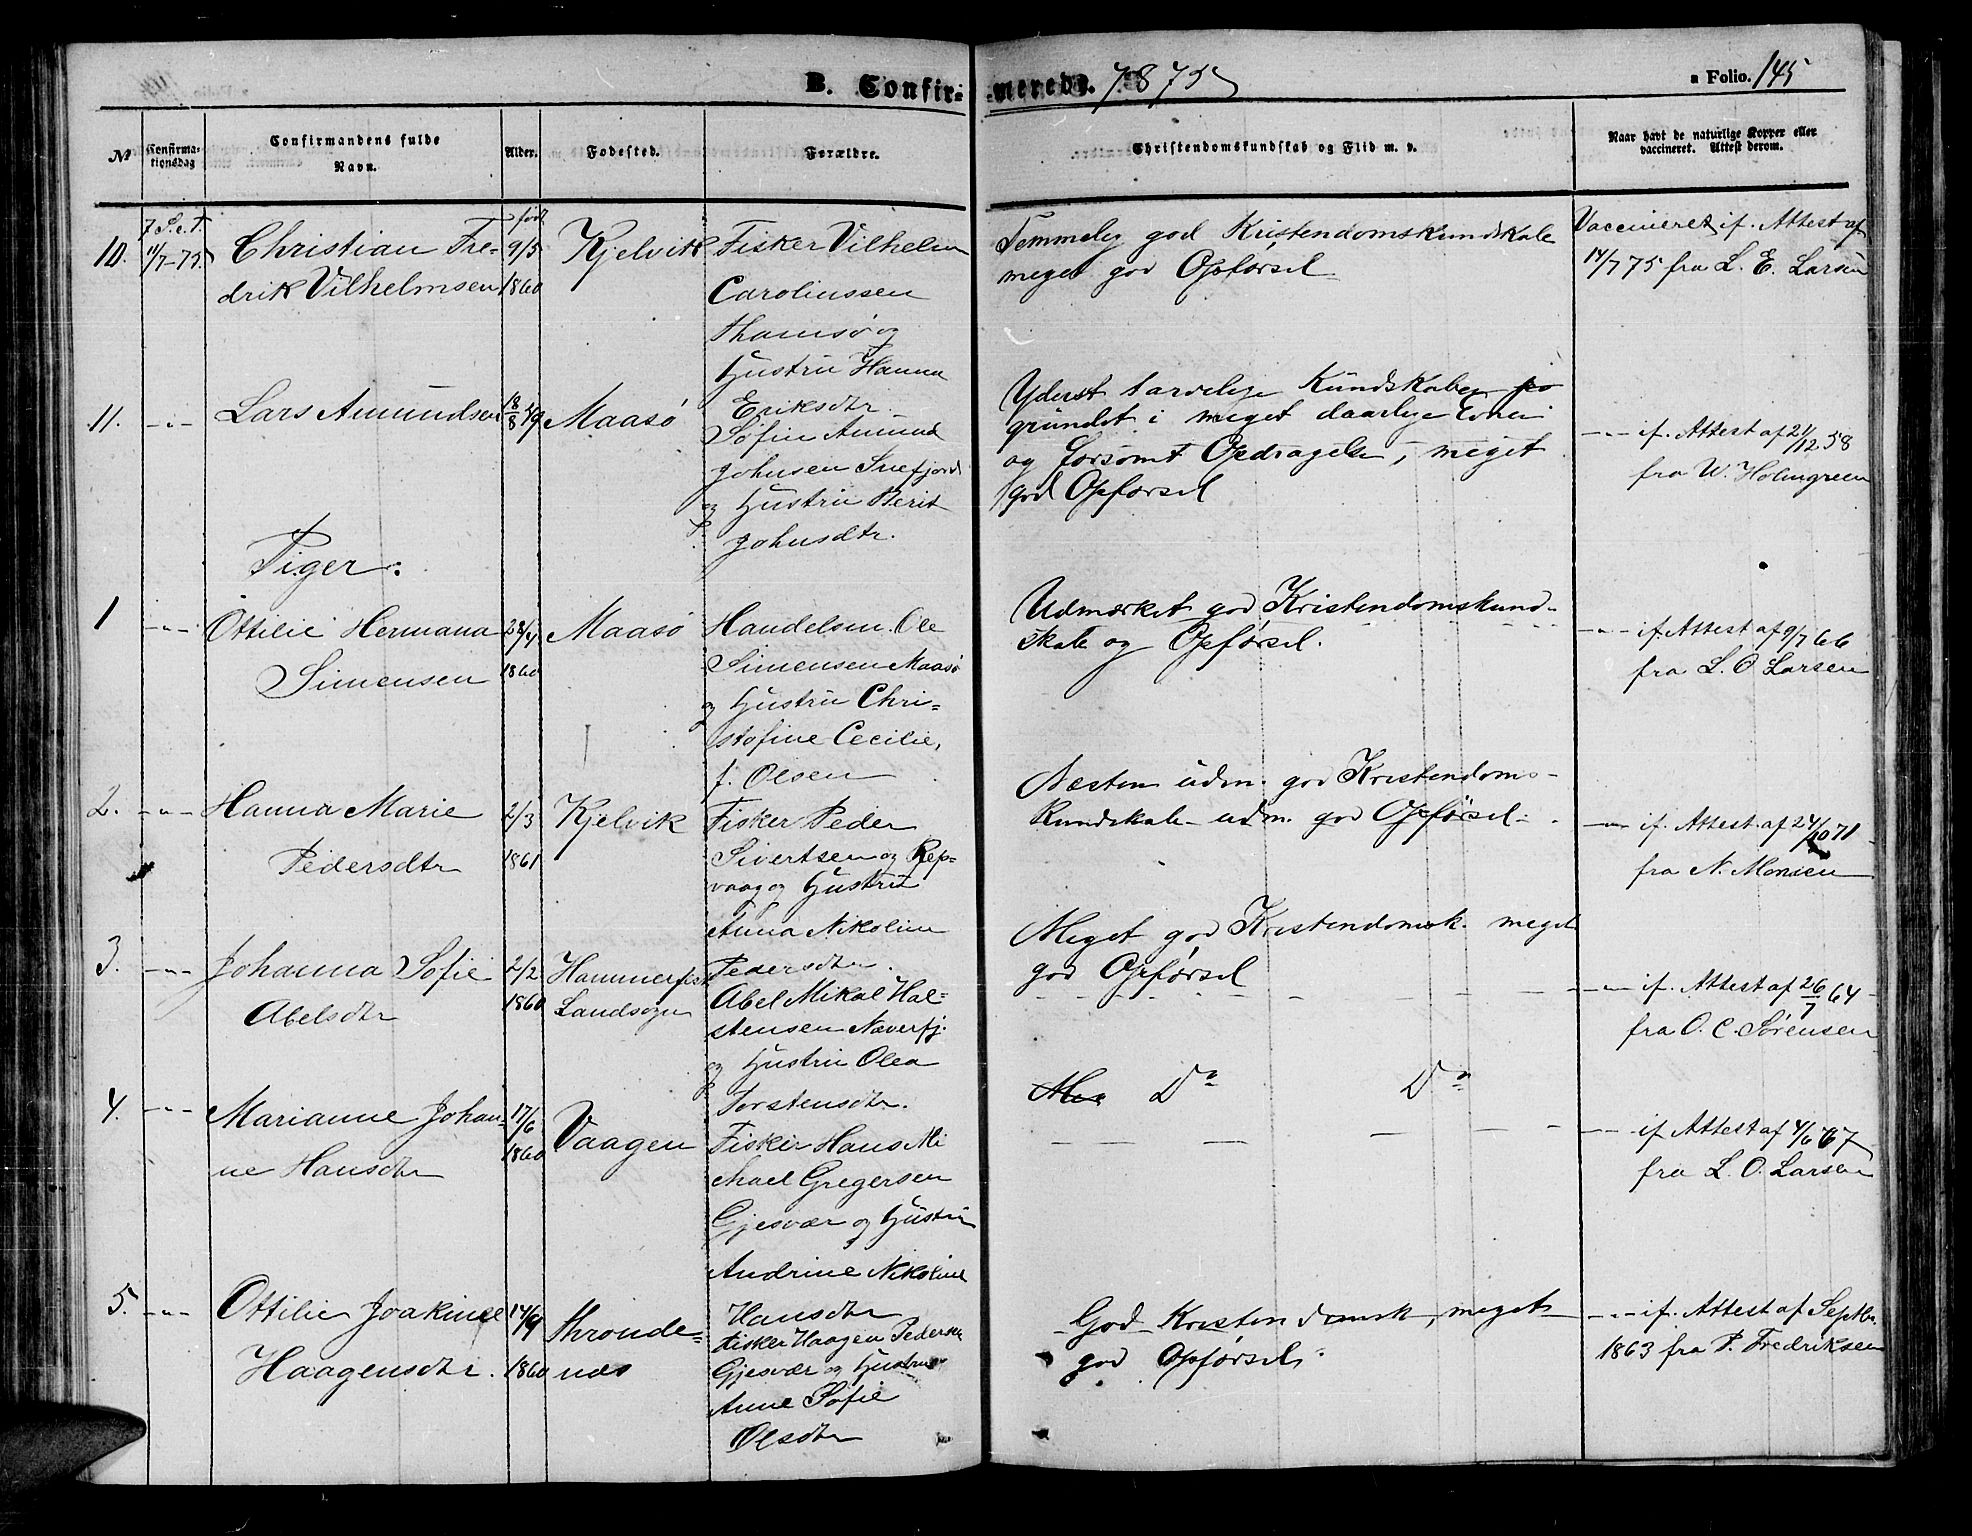 B. Confir- -merede. 1875
a Folio. 145
No
Confirma-
tionsdag
Confirmandens fulde
Navn.
Alder.
Fødested.
Forældre.
Christendomskundskab og Flid m. v.
Naar havt de naturlige Kopper eller
vaccineret. Attest derom.
10.
7 S. e. T.
11/7-75.
Christian Fre-
drik Vilhelmsen
født
9/5
1860
Kjelvik
Fisker Vilhelm
Caroliussen
og
Hustru Hanna
Eriksdtr.
Temmelig god Kristendomskundskab
meget god Opførsel
Vaccineret if. Attest af
14/7 75 fra L. E. Larsen
11.
-"-
Lars Amundsen
18/8 59
Maasø
Søfin Amund
Johnsen Snefjord
og Hustru Berit
Johnsdtr.
Yderst tarvelige Kundskaber
grundet i meget daarlige Evner
og forsømt Opdragelse, meget
god Opførsel
-"- if. Attest af 21/12 58
fra W. Holmgreen
Piger:
1
-"-
Ottilie Hermana
Simensen
28/4
1860
Maasø
Handelsm. Ole
Simensen Maasø
og Hustru Chri-
stofine Cecilie,
f. Olsen
Udmærket god Kristendomskund-
skab og Opførsel.
-"- if. Attest af 9/7 66
fra L. O. Larsen
2.
-"-
Hanna Marie
Pedersdtr
2/3
1861
Kjelvik
Fisker Peder
Sivertsen og Rep-
vaag og Hustru
Anna Nikoline
Pedersdtr.
Næsten udm. god Kristendoms-
kundskab udm. god Opførsel
-"- if. Attest af 24/10 71
fra N. Monsen
3.
-"-
Johanna Sofie
Abelsdtr
2/2
1860
Hammerfest
Landsogn
Abel Mikal Hal-
stensen Næverfj.
og Hustru Olea
Torstensdtr.
Meget god Kristendomsk. meget
god Opførsel
-"- if. Attest af 26/7 64
fra O. C. Sørensen
4.
-"-
Marianne Johan-
ne Hansdtr
17/6
1860
Vaagen
Fisker Hans Mi
chael Gregersen
Gjesvær og Hustru
Andrine Nikoline
Hansdtr
Meg Do Do
-"- if Attest af 4/6 67
fra L. O. Larsen
5.
-"-
Ottilie Joakime
Haagensdtr.
14/9
1860
Thronde-
næs
Fisker Haagen Pedersen
Gjesvær og Hustru
Anne Sofie
Olsdtr
God Kristendomsk, meget
god Opførsel.
-"- if. Attest af Septbr.
1863 fra P. Fredriksen